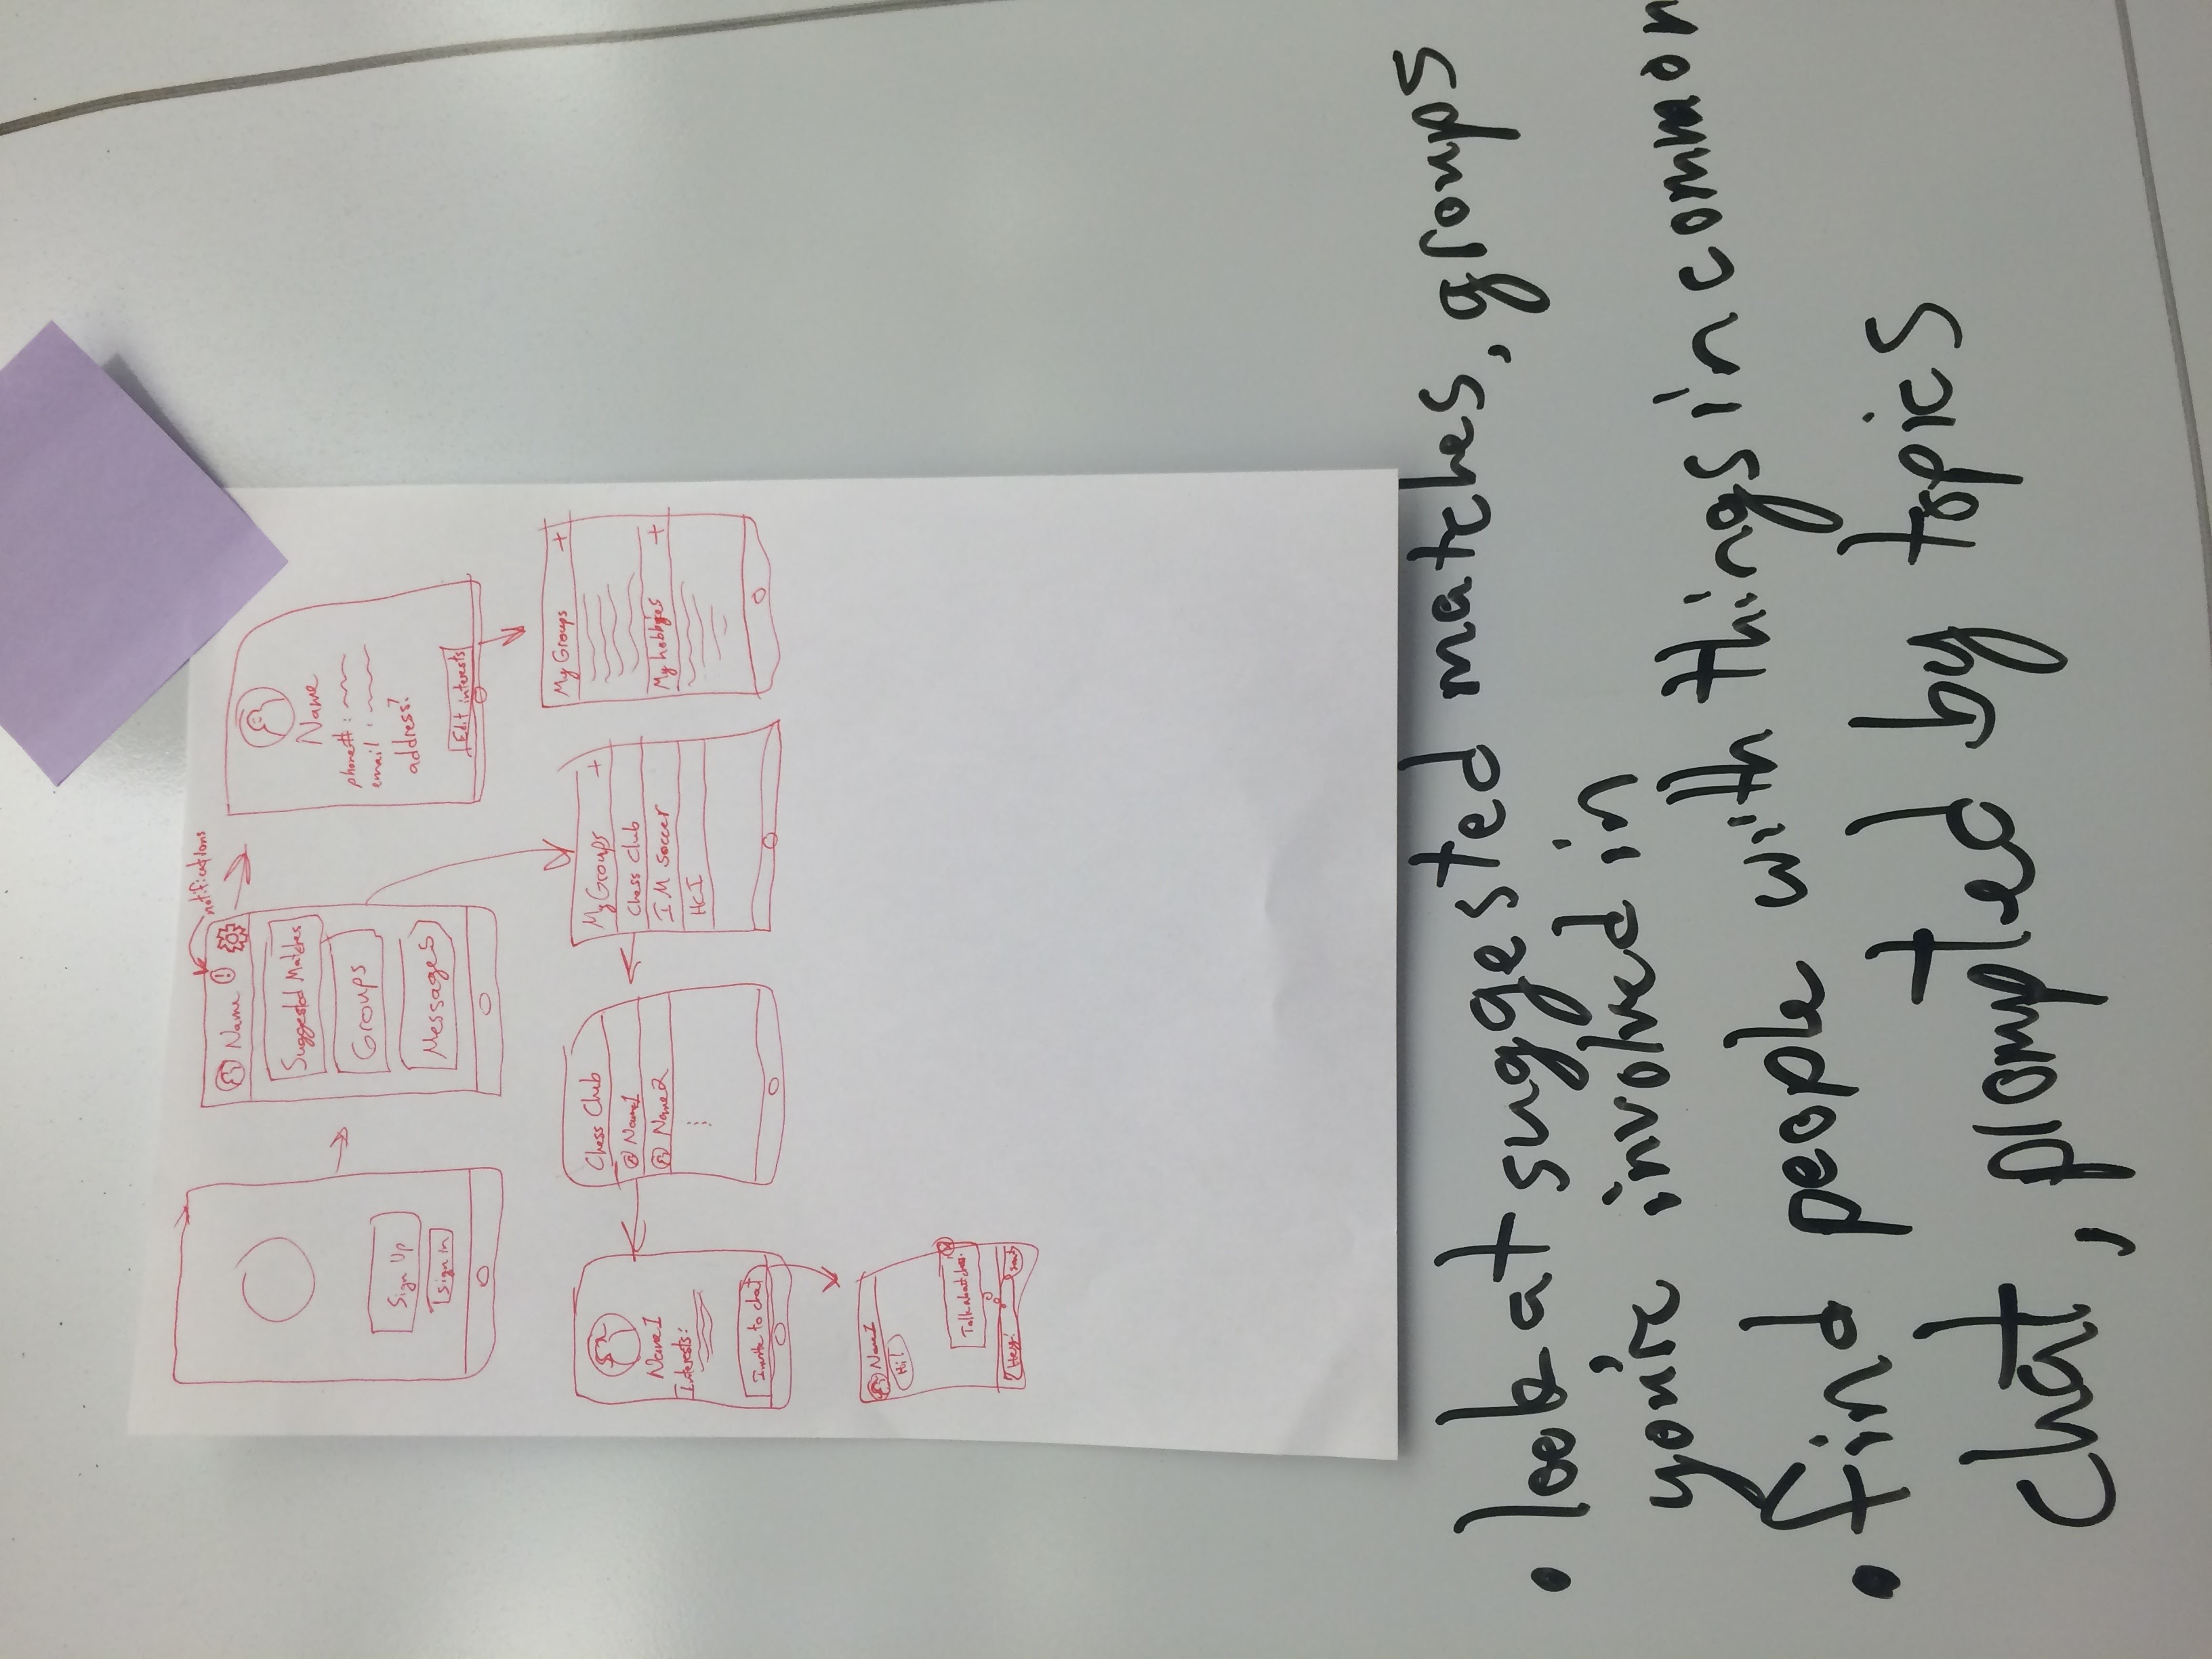 Sign Up
Sign in
notifications
Name
Suggested Matches
Groups
Messages
Name
phone# :
email :
address?
Edit interests
My Groups +
My hobbies +
My Groups +
Chess Club
IM soccer
HCI
Chess Club
Name1
Name2
Name1
Interests:
Invite to chat
Name1
Hi!
Talk about chess!
Hey!
send
• look at suggested matches, groups
you're involved in
• find people with things in common
chat, prompted by topics